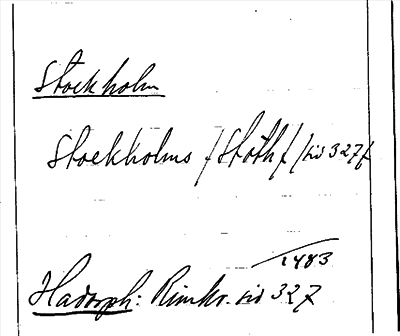 Stockholm
Stockholms /Stoth/ /sid 327f
1483
Hadorph: Rimkr. sid 327